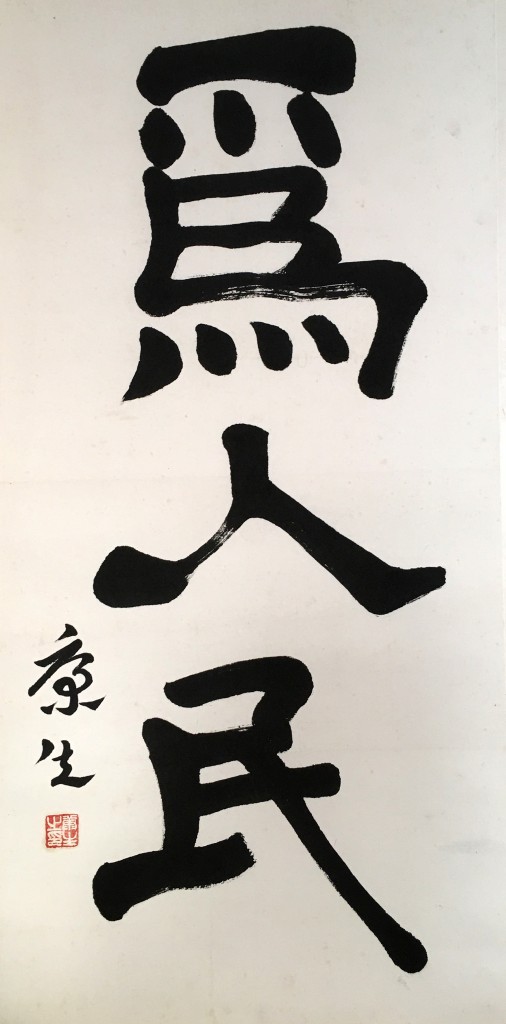 爲人民
康生